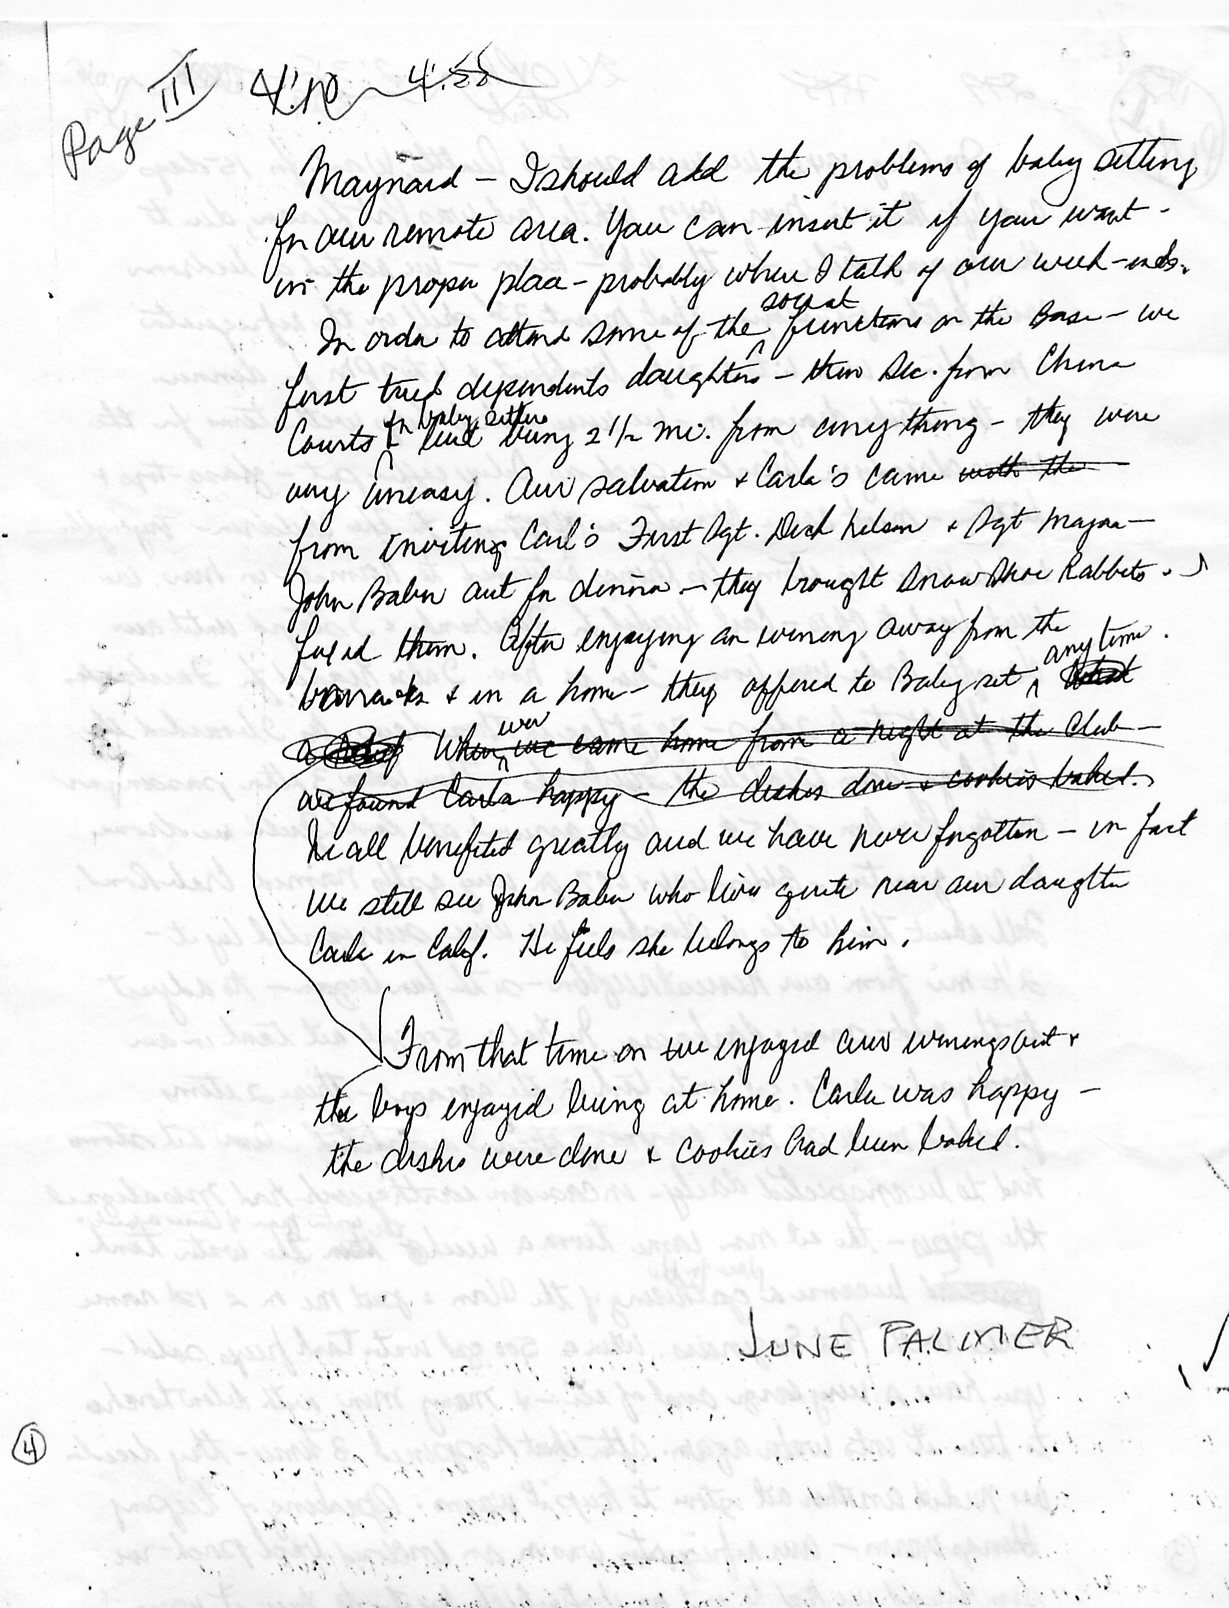 Page III
4:10 — 4:58
Maynard — I should add the problems of baby sitting
for our remote area. You can insert it if you want -
in the proper place - probably where I talk of our week-ends.
In order to attend some of the social functions on the Base - we
first tried dependents daughters - then Sec. from China
Courts for baby sitters but being 2 1/2 mi. from anything - they were
very uneasy. Our salvation & Carla's came with the
from inviting Carl's First Sgt. Dick Nelson & Sgt Major -
John Baber out for dinner - they brought Snow Shoe Rabbits. &
fixed them. After enjoying an evening away from the
barracks & in a home - they offered to Baby set anytime.
When ever we came home from a night at the Club -
we found Carla happy - the dishes done & cookies baked.
We all benefited greatly and we have never forgotten - in fact
we still see John Baber who lives quite near our daughter
Carla in Calif. He feels she belongs to him.
From that time on we enjoyed our evenings out &
the boys enjoyed being at home. Carla was happy -
the dishes were done & cookies had been baked.
JUNE PALMER
4